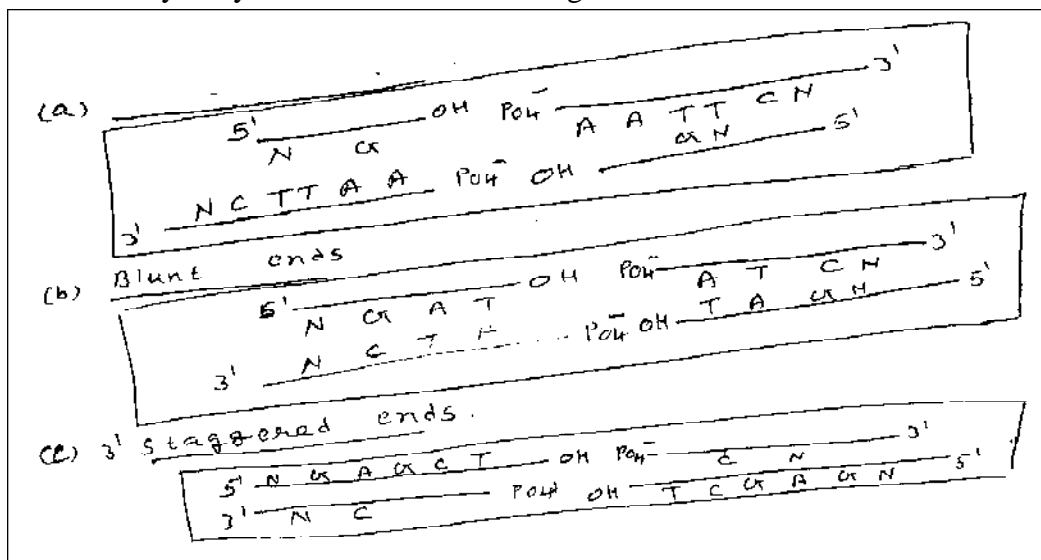 (a)
5' N G OH PO4⁻ A A T T C N 3'
3' N C T T A A PO4⁻ OH G N 5'
(b) Blunt ends
5' N G A T OH PO4⁻ A T C N 3'
3' N C T PO4⁻ OH T A G N 5'
(c) 3' staggered ends.
5' N G A G C T OH PO4⁻ C N 3'
3' N C PO4 OH T C G A G N 5'